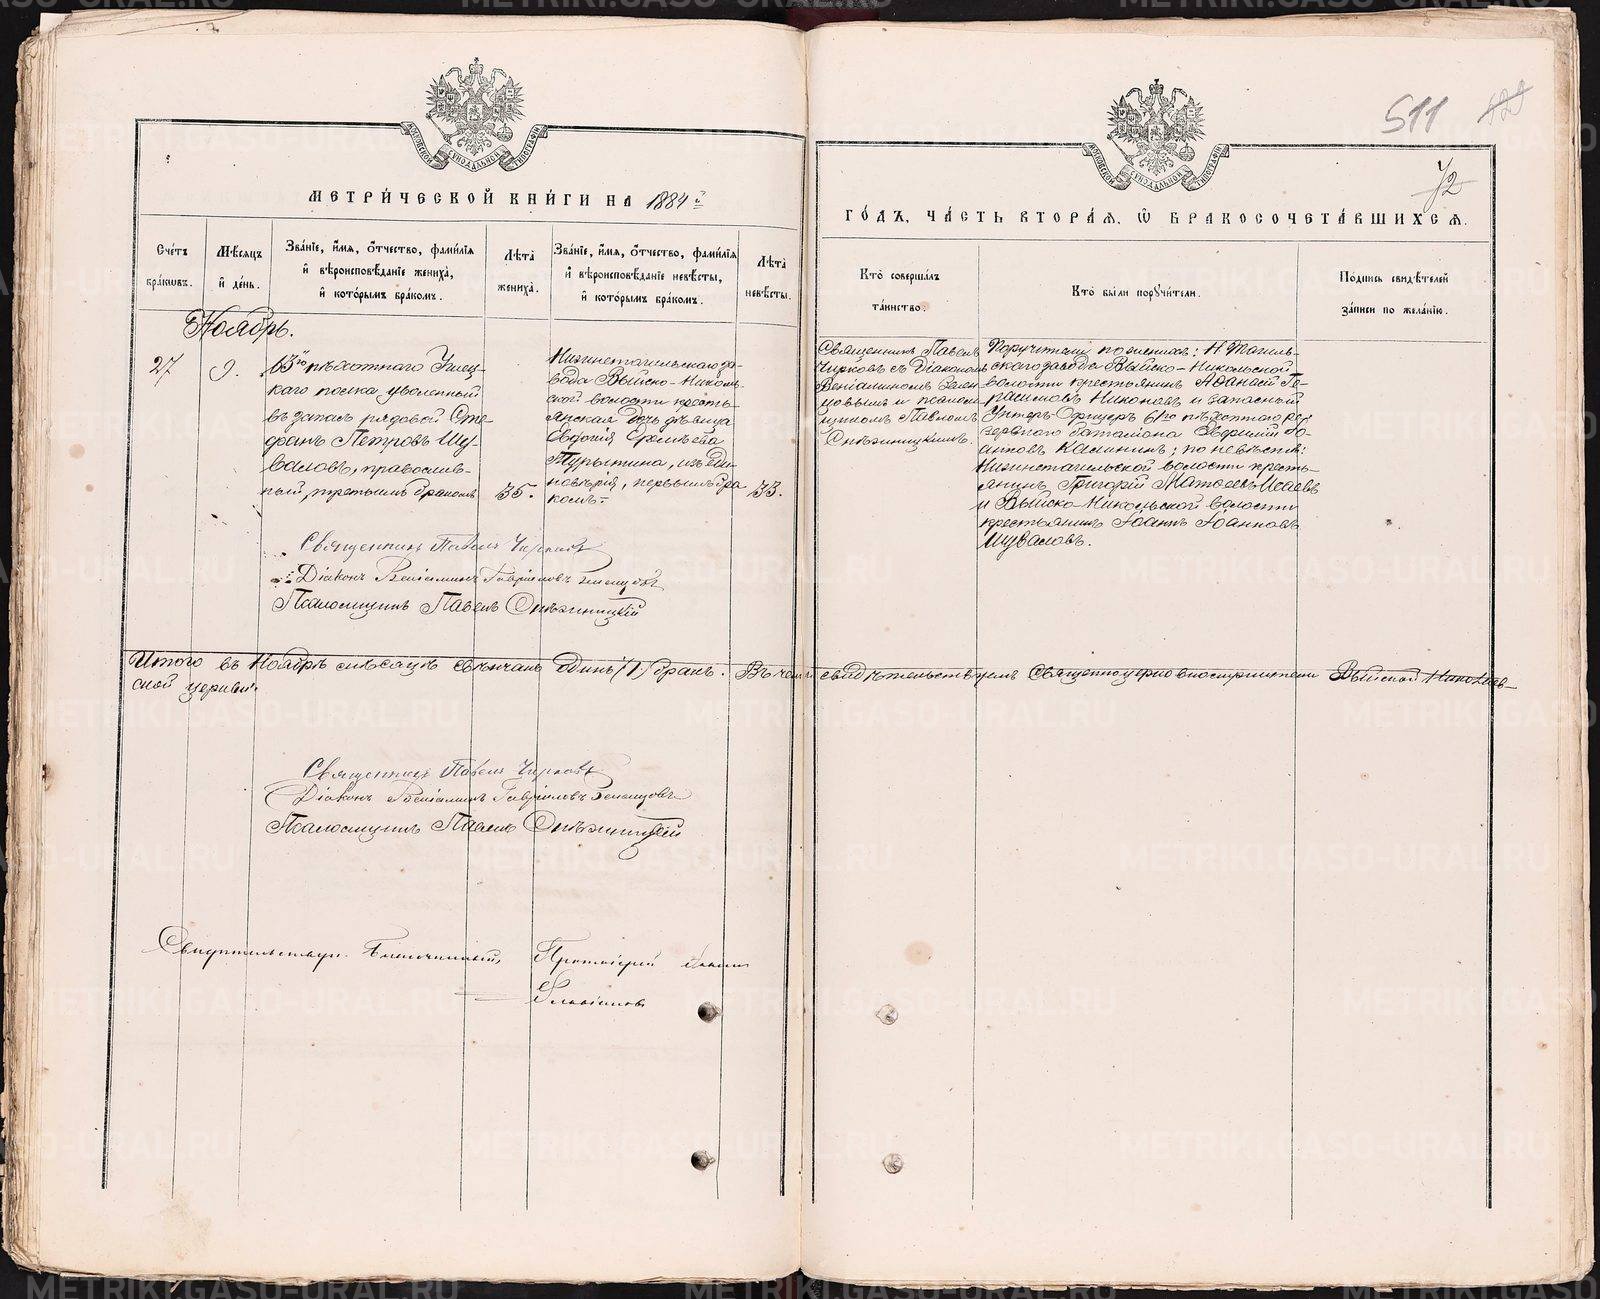 511
72
МОСКОВСКОЙ СѴНОДАЛЬНОЙ ТИПОГРАФІИ
МОСКОВСКОЙ СѴНОДАЛЬНОЙ ТИПОГРАФІИ
МЕТРИ́ЧЕСКОЙ КНИ́ГИ НА 1884й
ГО́ДЪ, ЧА́СТЬ ВТОРА́Я, Ѽ БРАКОСОЧЕТА́ВШИХСЯ.
Сче́тъ бра́кωвъ.
Мѣ́сяцъ и҆ де́нь.
Зва́нїе, и҆́мя, ѻ҆́тчество, фами́лїя
и҆ вѣроисповѣ́данїе жениха̀,
и҆ кото́рымъ бра́комъ.
Лѣта̀ жениха̀.
Зва́нїе, и҆́мя, ѻ҆́тчество, фами́лїя
и҆ вѣроисповѣ́данїе невѣ́сты,
и҆ кото́рымъ бра́комъ.
Лѣта̀ невѣ́сты.
Кто̀ соверша́лъ
та́инство.
Кто̀ бы́ли порꙋчи́тели.
По́дпись свидѣ́телей
за́писи по жела́нїю.
Ноябрь.
27
9.
пѣхотнаго
каго полка уволенный
въ запасъ рядовой Сте-
фанъ Петровъ Шу-
валовъ, православ-
ный, третьимъ бракомъ
35.
Нижнетагильскаго за-
вода Выйско-Николь-
ской волости кресть-
янская дочь дѣвица
Евдокія Еремѣева
, изъ еди-
новѣрія, первымъ бра
комъ.
33.
Священникъ Павелъ
Чирковъ съ Діакономъ
Веніаминомъ
и псалом-
щикомъ Павломъ
Снѣжницкимъ.
Поручители по женихѣ: Н. Тагиль-
скаго завода Выйско-Никольской
волости крестьянинъ Афанасій Ге-
расимовъ Никоновъ и запасный
Унтеръ-Офицеръ 61го пѣхотнаго ре-
зервнаго баталіона
Калининъ; по невѣстѣ:
Нижнетагильской волости кресть-
янинъ Григорій Матвеевъ Исаевъ
и Выйско-Никольской волости
крестьянинъ Іоаннъ Іоанновъ
Шуваловъ.
Священникъ Павелъ Чирковъ
Діаконъ Веніаминъ Гавріиловъ
Псаломщикъ Павелъ Снѣжницкій
Итого въ Ноябрѣ мѣсяцѣ вѣнчанъ одинъ (1) бракъ. Въ чемъ свидѣтельствуемъ Священноцерковнослужители Выйской Николаев-
ской церкви:
Священникъ Павелъ Чирковъ
Діаконъ Веніаминъ Гавріиловъ
Псаломщикъ Павелъ Снѣжницкій
Благочинный, Протоіерей
METRIKI.GASO-URAL.RU